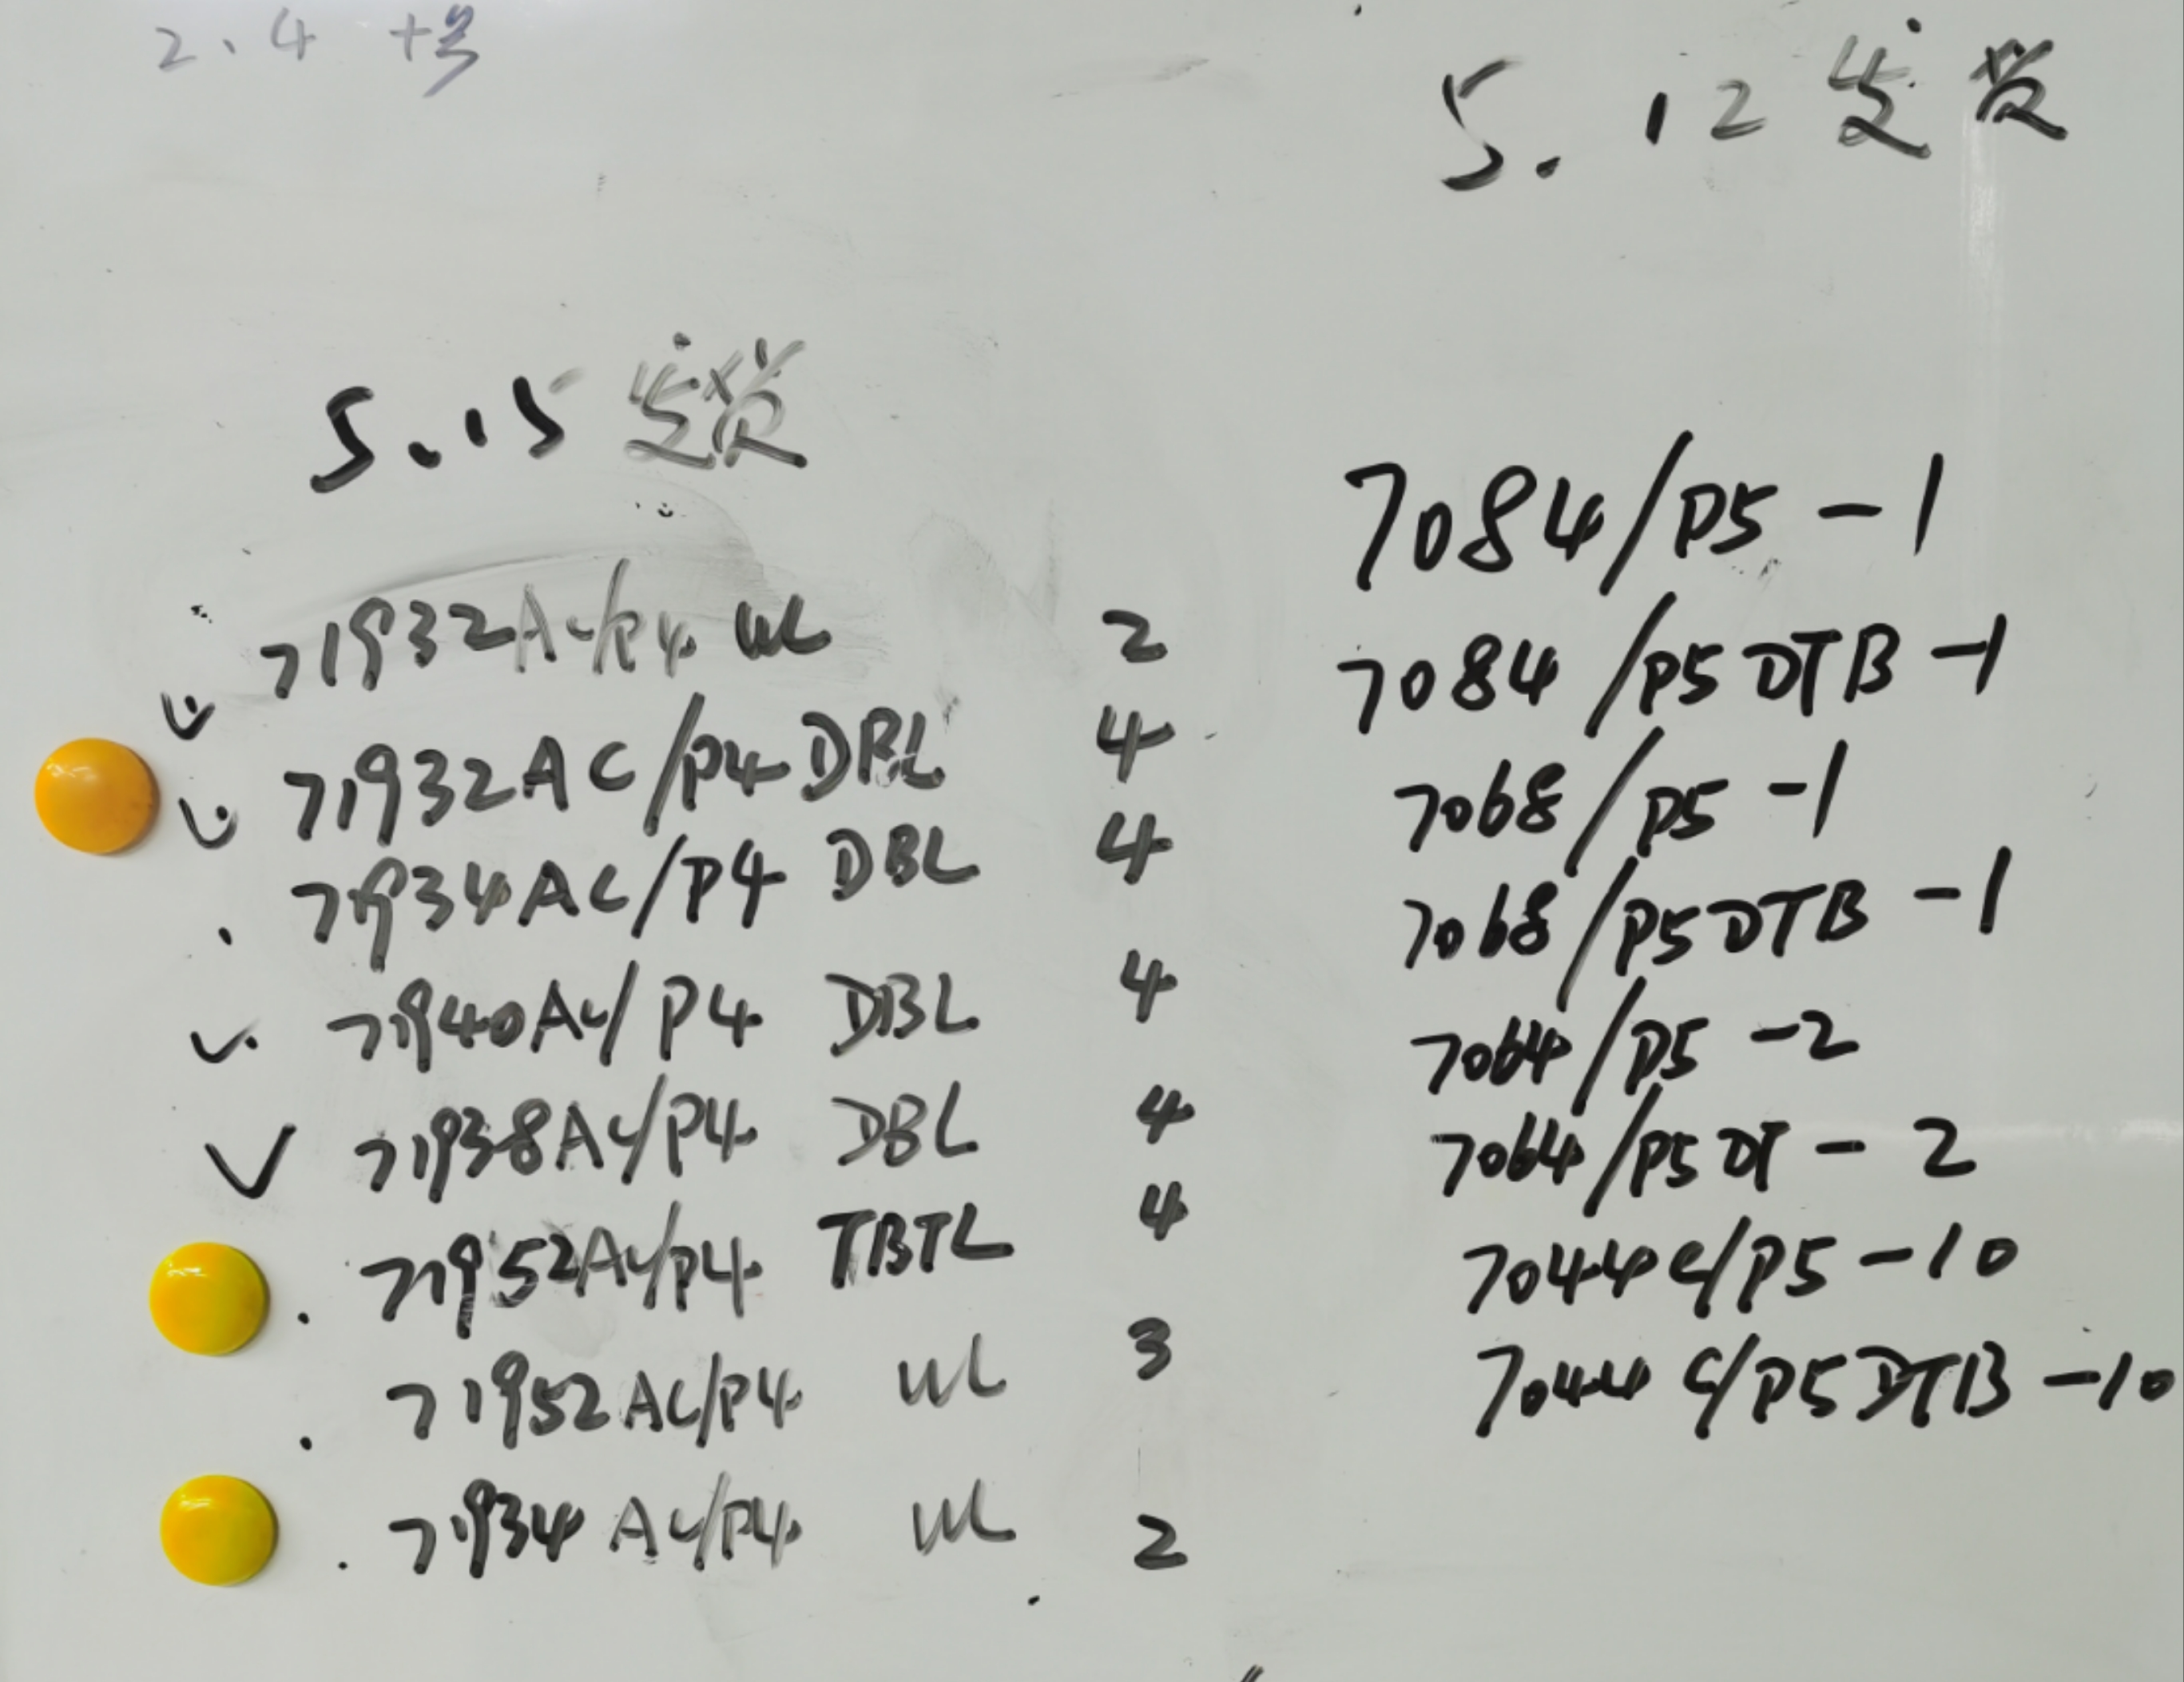 2、4 十号
5.15发货
71932AC/P4 UL 2
71932AC/P4 DBL 4
71934AC/P4 DBL 4
71940AC/P4 DBL 4
71938AC/P4 DBL 4
71952AC/P4 TBTL 4
71952AC/P4 UL 3
71934AC/P4 UL 2
5.12发货
7084/P5 -1
7084/P5DTB -1
7068/P5 -1
7068/P5DTB -1
7064/P5 -2
7064/P5DT - 2
7044C/P5 -10
7044C/P5DTB -10